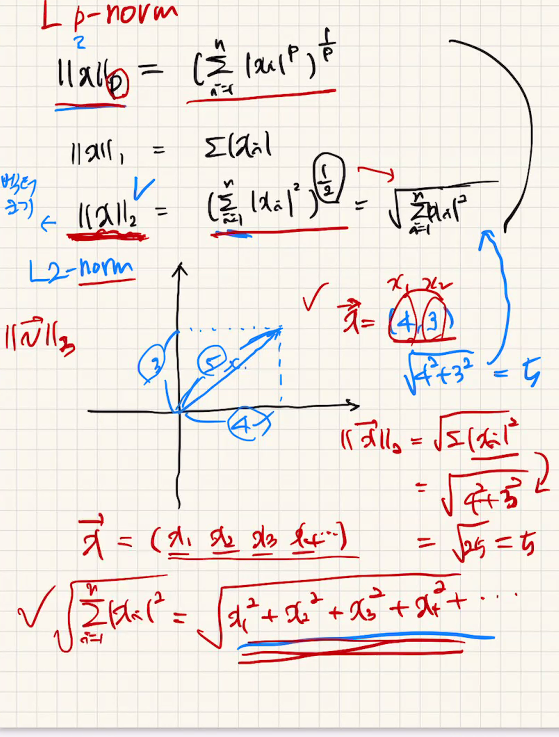 L p-norm
2
||x||p = (Σ_{i=1}^{n} |xi|^p)^{1/p}
||x||₁ = Σ|xi|
벡터
크기 ← ||x||₂ = (Σ_{i=1}^{n} |xi|²)^{1/2} = √(Σ_{i=1}^{n} |xi|²)
L2-norm
x₁ x₂
x⃗ = (4, 3)
√(4²+3²) = 5
3
5
x
4
||x⃗||₂ = √(Σ|xi|²)
= √(4²+3²)
= √25 = 5
x⃗ = (x₁ x₂ x₃ x₄ ...)
√(Σ_{i=1}^{n} |xi|²) = √(x₁² + x₂² + x₃² + x₄² + ...